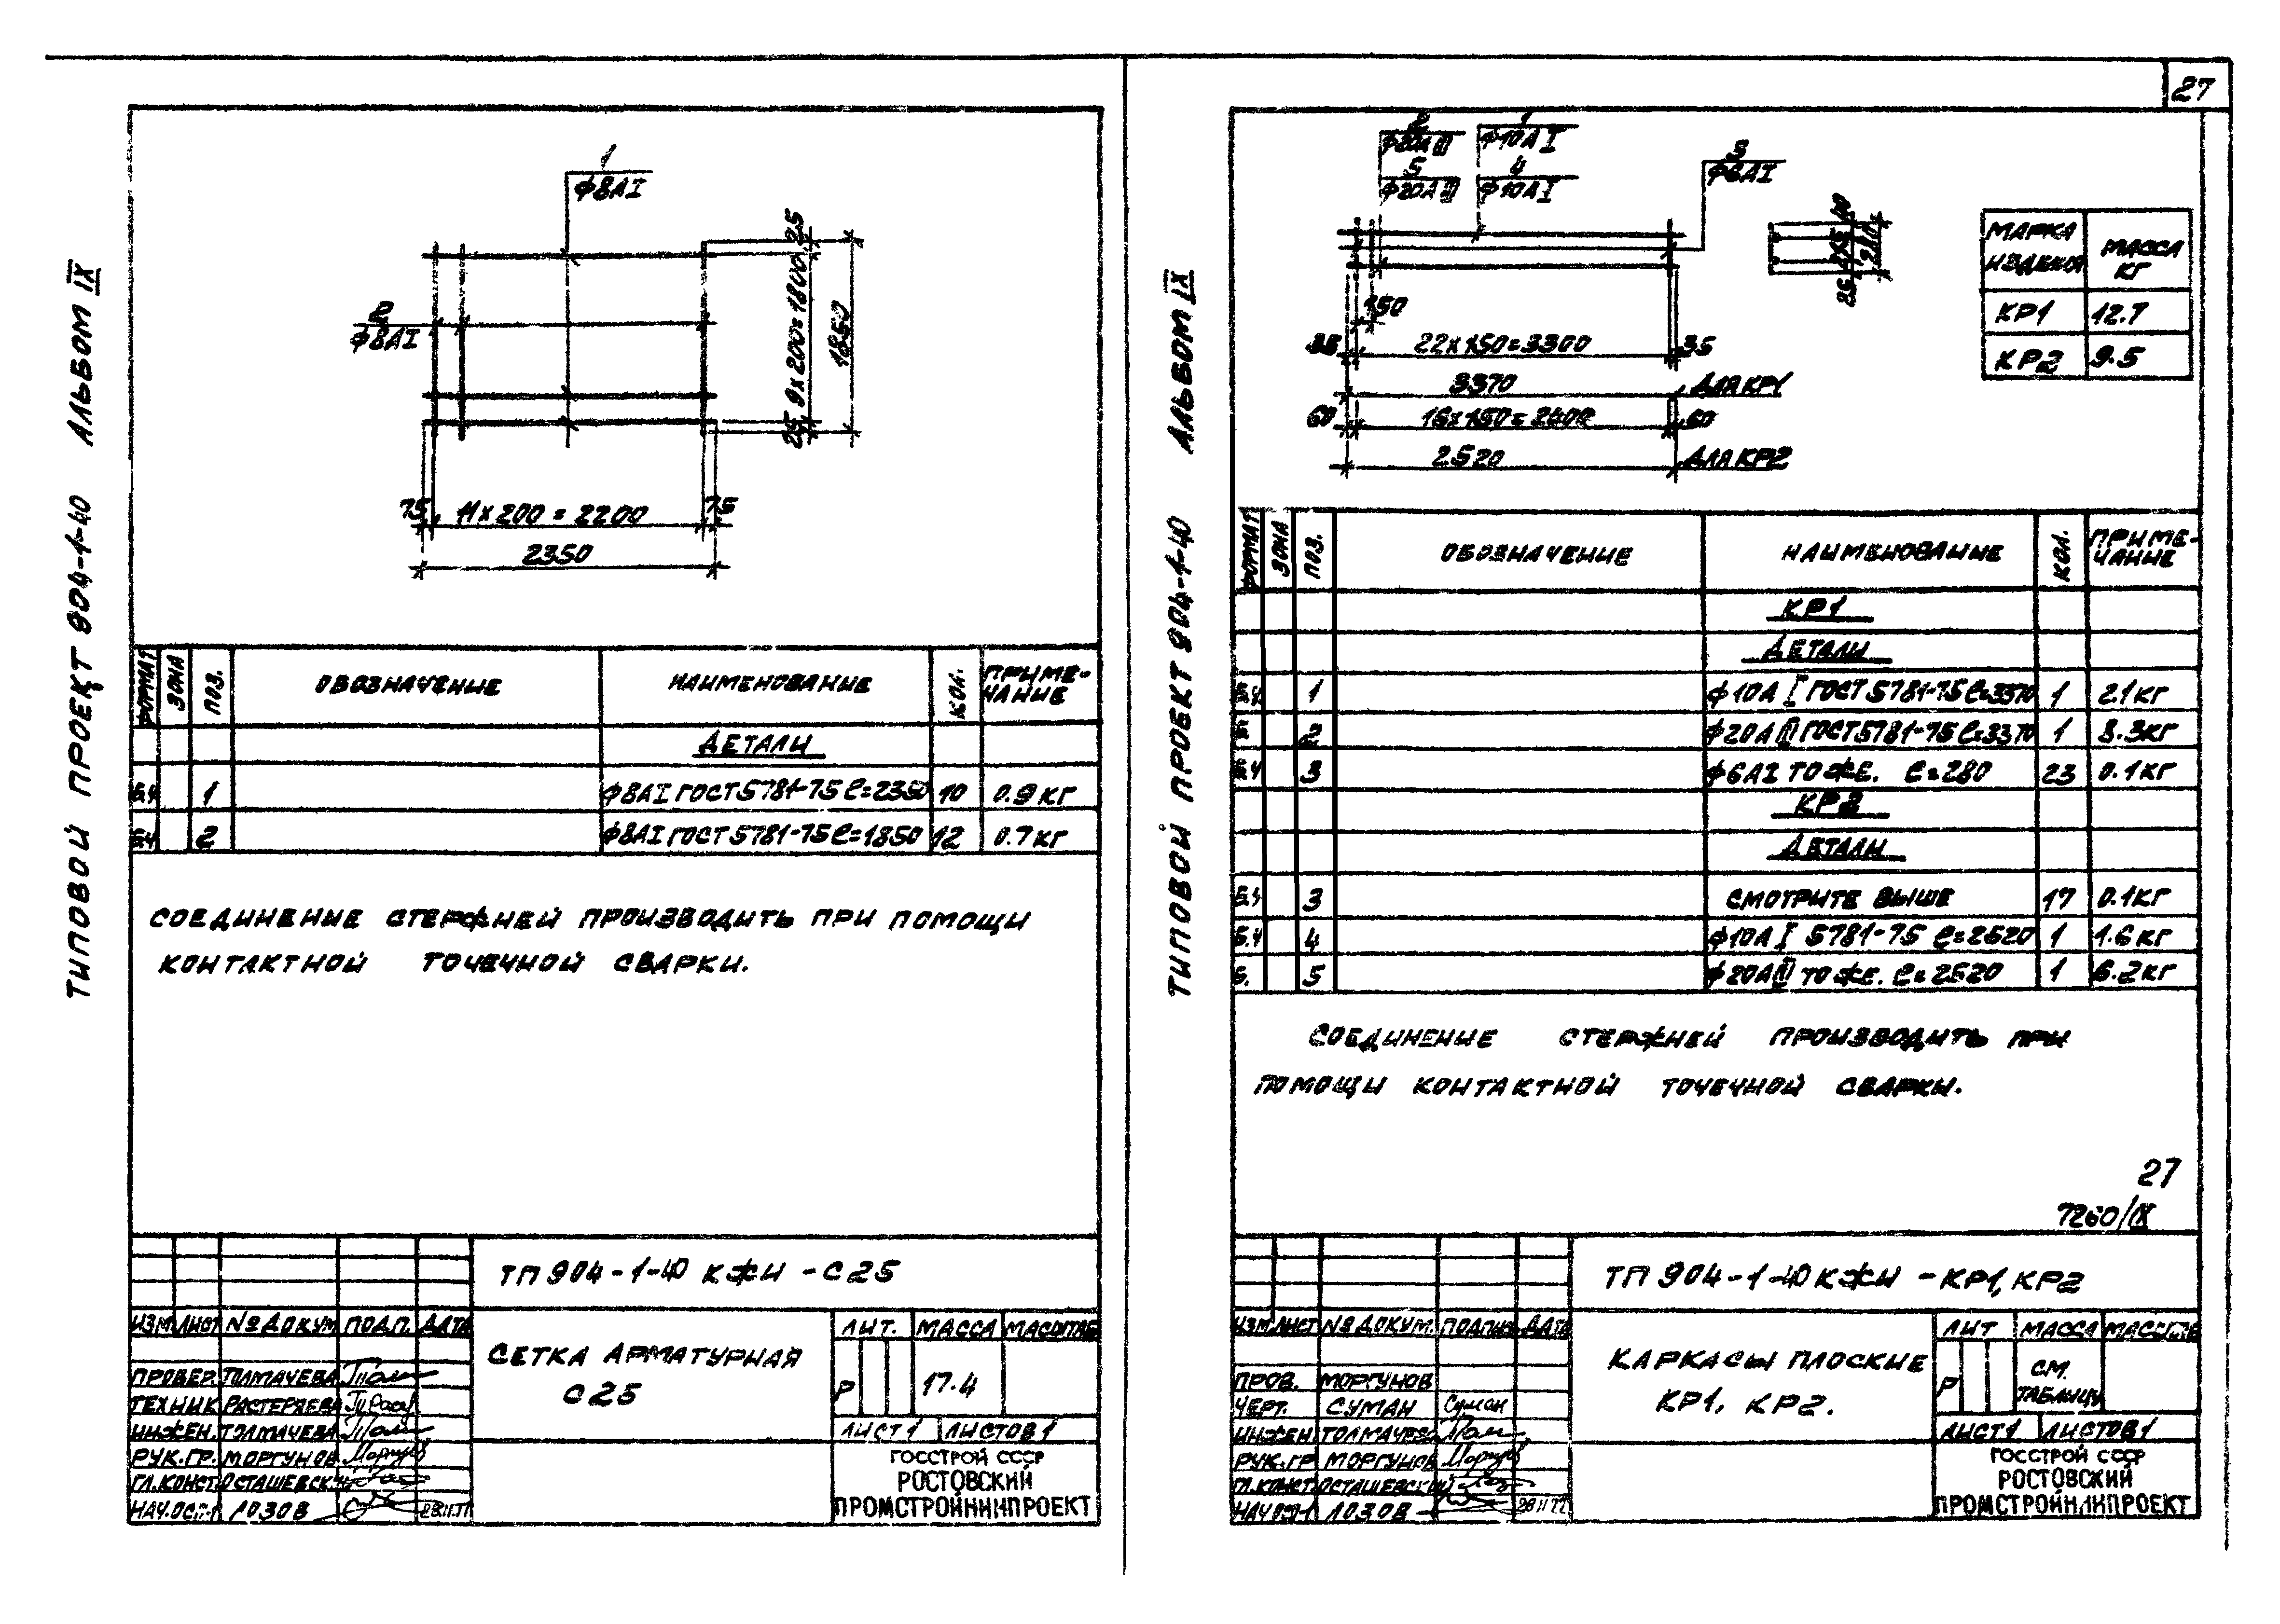 27
ТИПОВОЙ ПРОЕКТ 904-1-40 АЛЬБОМ IX
1
ф8АI
2
ф8АI
25
9х200=1800
25
1850
75 11х200=2200 75
2350
ФОРМАТ ЗОНА ПОЗ. ОБОЗНАЧЕНИЕ НАИМЕНОВАНИЕ КОЛ. ПРИМЕ-
ЧАНИЕ
ДЕТАЛИ
Б.Ч 1 ф8АI ГОСТ 5781-75 ℓ=2350 10 0.9 кг
Б.Ч 2 ф8АI ГОСТ 5781-75 ℓ=1850 12 0.7 кг
СОЕДИНЕНИЕ СТЕРЖНЕЙ ПРОИЗВОДИТЬ ПРИ ПОМОЩИ
КОНТАКТНОЙ ТОЧЕЧНОЙ СВАРКИ.
ТП 904-1-40 КЖИ -С25
ИЗМ. ЛИСТ №ДОКУМ ПОДП. ДАТА
СЕТКА АРМАТУРНАЯ
С25
ЛИТ. МАССА МАСШТАБ
Р 17.4
ЛИСТ 1 ЛИСТОВ 1
ПРОВЕР. ТОЛМАЧЕВА
ТЕХНИК РАСТЕРЯЕВА
ИНЖЕН. ТОЛМАЧЕВА
РУК.ГР. МОРГУНОВ
ГЛ.КОНСТ ОСТАШЕВСК
НАЧ.ОСП-1 ЛОЗОВ 28.11.77
ГОССТРОЙ СССР
РОСТОВСКИЙ
ПРОМСТРОЙНИИПРОЕКТ
ТИПОВОЙ ПРОЕКТ 904-1-40 АЛЬБОМ IX
2 1
ф20АIII ф10АI
5 4
ф20АIII ф10АI
3
ф6АI
40
215
25
280
150
35 22х150=3300 35
3370 ДЛЯ КР1
60 16х150=2400 60
2520 ДЛЯ КР2
МАРКА
ИЗДЕЛИЯ МАССА
КГ
КР1 12.7
КР2 9.5
ФОРМАТ ЗОНА ПОЗ. ОБОЗНАЧЕНИЕ НАИМЕНОВАНИЕ КОЛ. ПРИМЕ-
ЧАНИЕ
КР1
ДЕТАЛИ
Б.Ч 1 ф10АI ГОСТ 5781-75 ℓ=3370 1 2.1 кг
Б 2 ф20АIII ГОСТ 5781-75 ℓ=3370 1 8.3 кг
Б.Ч 3 ф6АI ТО ЖЕ. ℓ=280 23 0.1 кг
КР2
ДЕТАЛИ
Б.Ч 3 СМОТРИТЕ ВЫШЕ 17 0.1 кг
Б.Ч 4 ф10АI 5781-75 ℓ=2520 1 1.6 кг
Б. 5 ф20АIII ТО ЖЕ. ℓ=2520 1 6.2 кг
СОЕДИНЕНИЕ СТЕРЖНЕЙ ПРОИЗВОДИТЬ ПРИ
ПОМОЩИ КОНТАКТНОЙ ТОЧЕЧНОЙ СВАРКИ.
27
7260/IX
ТП 904-1-40 КЖИ -КР1, КР2
ИЗМ. ЛИСТ №ДОКУМ. ПОДПИСЬ ДАТА
КАРКАСЫ ПЛОСКИЕ
КР1, КР2.
ЛИТ МАССА МАСШТАБ
Р СМ.
ТАБЛИЦУ
ЛИСТ 1 ЛИСТОВ 1
ПРОВ. МОРГУНОВ
ЧЕРТ. СУМАН Суман
ИНЖЕН ТОЛМАЧЕВА
РУК.ГР МОРГУНОВ
ГЛ.КОНСТ. ОСТАШЕВСКИЙ
НАЧ.ОСП-1 ЛОЗОВ 28.11.77
ГОССТРОЙ СССР
РОСТОВСКИЙ
ПРОМСТРОЙНИИПРОЕКТ